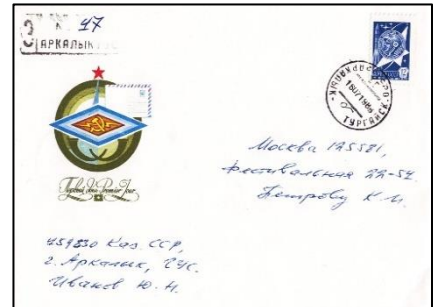 З № 47
АРКАЛЫК
ТУРГАЙСК.
Первый день Premier Jour
Москва 125581,
Фестивальная 22-54.
Петрову К. И.
459830 Каз. ССР,
г. Аркалык, ГУС.
Иванов Ю. Н.